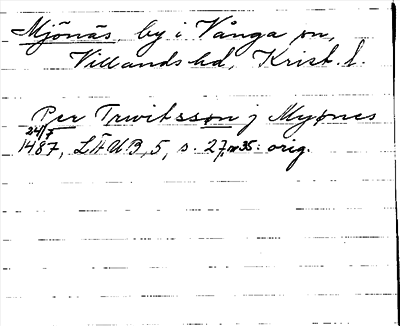 Mjönäs, by i Vånga sn,
Villands hd, Krist. l.
Per Trwitsson j Myønes
24/7
1487, LÄUB, 5, s. 27, nr 35: orig.